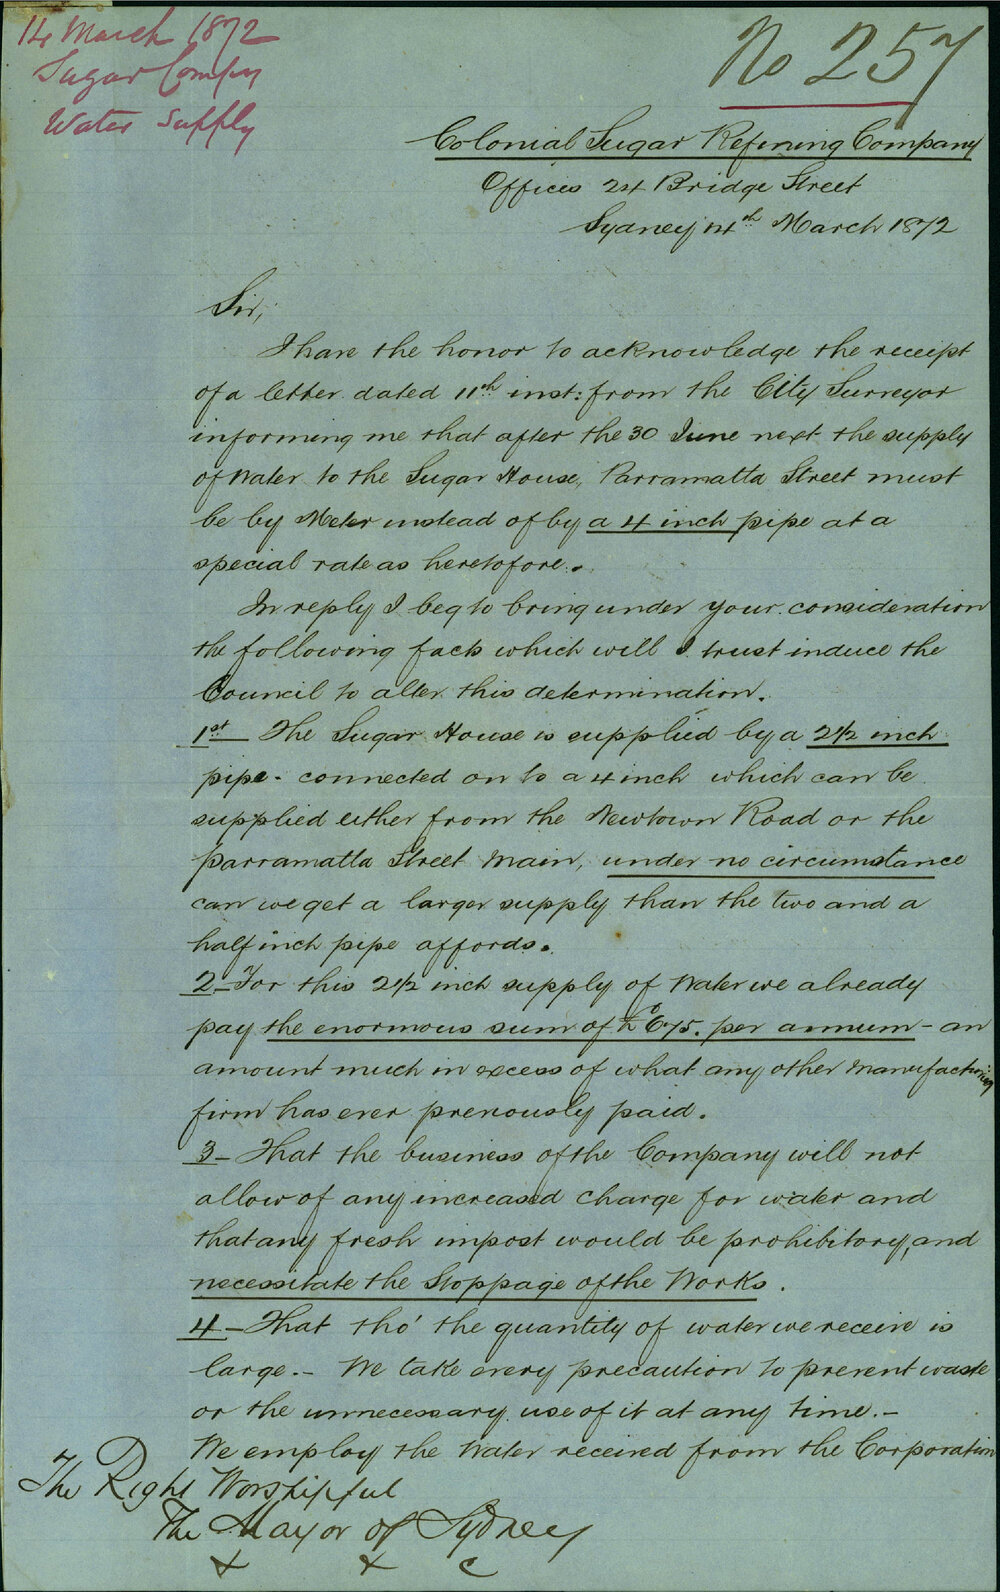 14 March 1872
Sugar Compy
Water Supply
No 257
Colonial Sugar Refining Company
Offices 24 Bridge Street
Sydney 14th March 1872
Sir,
I have the honor to acknowledge the receipt
of a letter dated 11th inst: from the City Surveyor
informing me that after the 30 June next the supply
of Water to the Sugar House, Parramatta Street must
be by Meter instead of by a 4 inch pipe at a
special rate as heretofore.
In reply I beg to bring under your consideration
the following facts which will I trust induce the
Council to alter this determination.
1st The Sugar House is supplied by a 2½ inch
pipe - connected on to a 4 inch which can be
supplied either from the Newtown Road or the
Parramatta Street Main, under no circumstance
can we get a larger supply than the two and a
half inch pipe affords.
2 - For this 2½ inch supply of Water we already
pay the enormous sum of £675. per annum - an
amount much in excess of what any other Manufacturing
firm has ever previously paid.
3 - That the business of the Company will not
allow of any increased charge for water and
that any fresh impost would be prohibitory, and
necessitate the Stoppage of the Works.
4 - That tho' the quantity of water we receive is
large. - We take every precaution to prevent waste
or the unnecessary use of it at any time. -
We employ the Water received from the Corporation
The Right Worshipful
The Mayor of Sydney
& & c